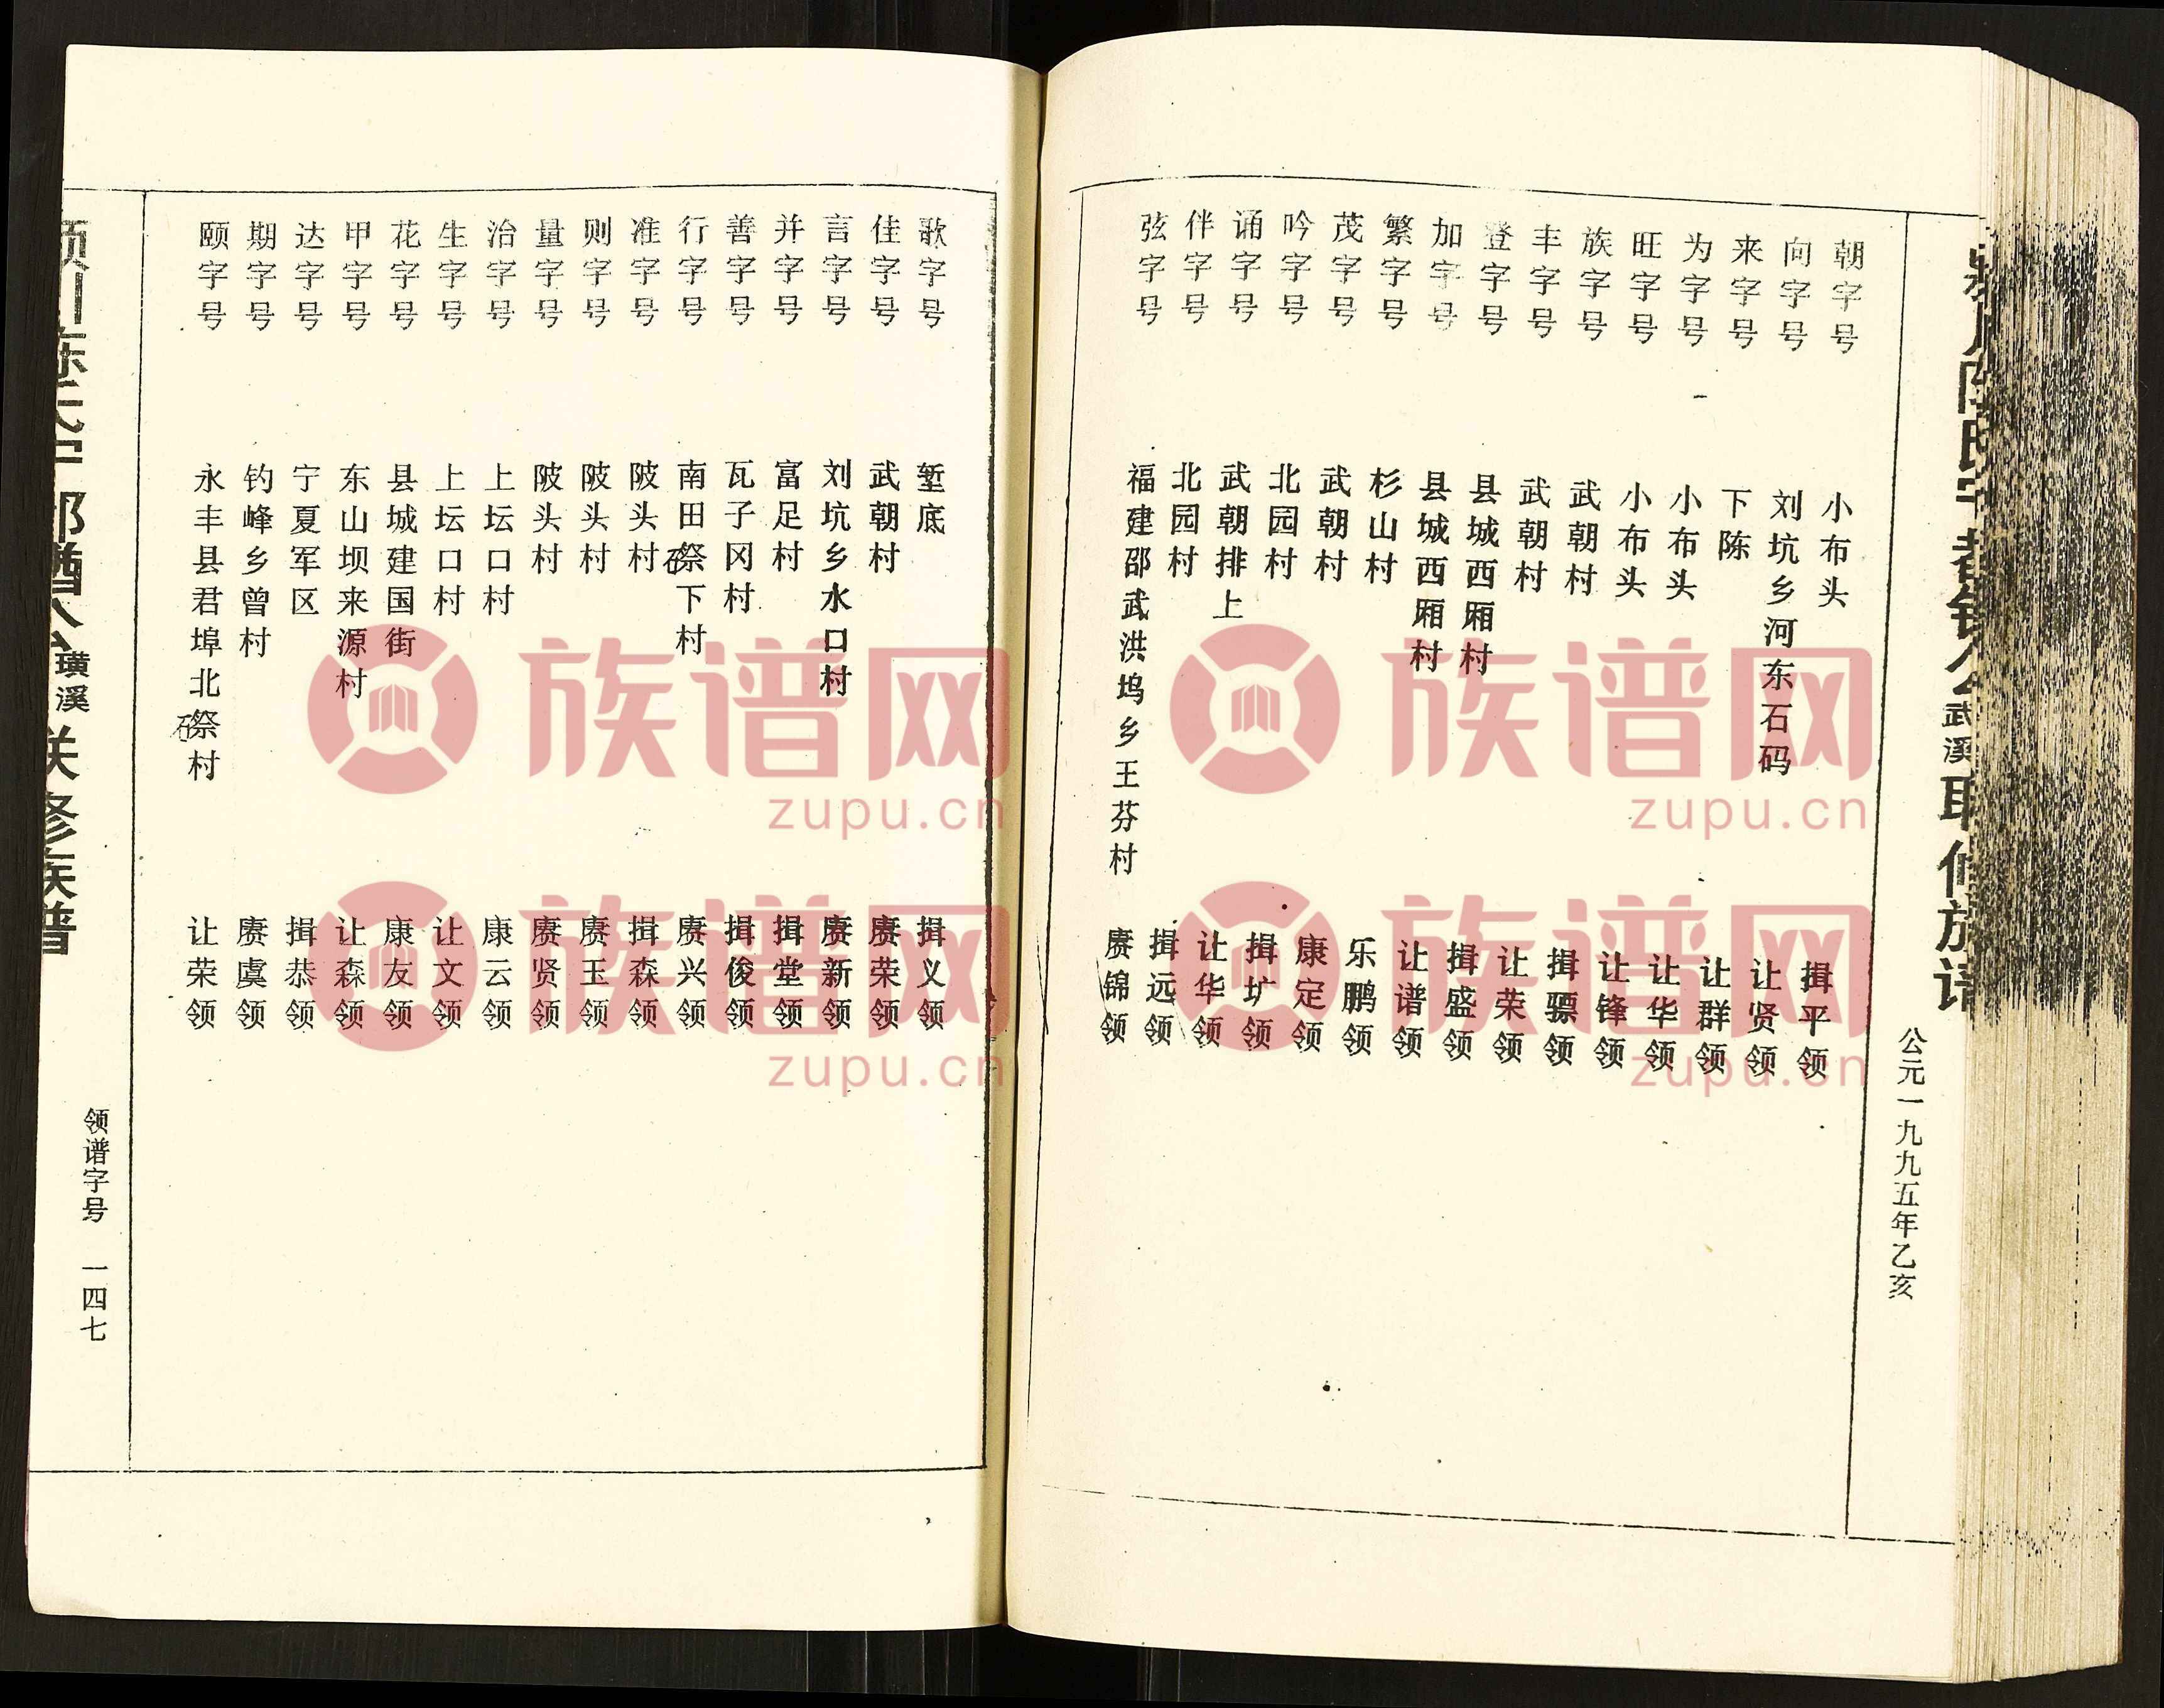 朝字号 小布头 揖平领
向字号 刘坑乡河东石码 让贤领
来字号 下陈 让群领
为字号 小布头 让华领
旺字号 小布头 让锋领
族字号 武朝村 揖骠领
丰字号 武朝村 让荣领
登字号 县城西厢村 揖盛领
加字号 县城西厢村 让谱领
繁字号 杉山村 乐鹏领
茂字号 武朝村 康定领
吟字号 北园村 揖圹领
诵字号 武朝排上 让华领
伴字号 北园村 揖远领
弦字号 福建邵武洪坞乡王芬村 赓锦领
武溪
修族谱
公元一九九五年乙亥
歌字号 堑底 揖义领
佳字号 武朝村 赓荣领
言字号 刘坑乡水口村 赓新领
并字号 富足村 揖堂领
善字号 瓦子冈村 揖俊领
行字号 南田磜下村 赓兴领
准字号 陂头村 揖森领
则字号 陂头村 赓玉领
量字号 陂头村 赓贤领
治字号 上坛口村 康云领
生字号 上坛口村 让文领
花字号 县城建国街 康友领
甲字号 东山坝来源村 让森领
达字号 宁夏军区 揖恭领
期字号 钓峰乡曾村 赓虞领
颐字号 永丰县君埠北磜村 让荣领
璜溪
修族谱
领谱字号 一四七
族谱网
zupu.cn
族谱网
zupu.cn
族谱网
zupu.cn
族谱网
zupu.cn